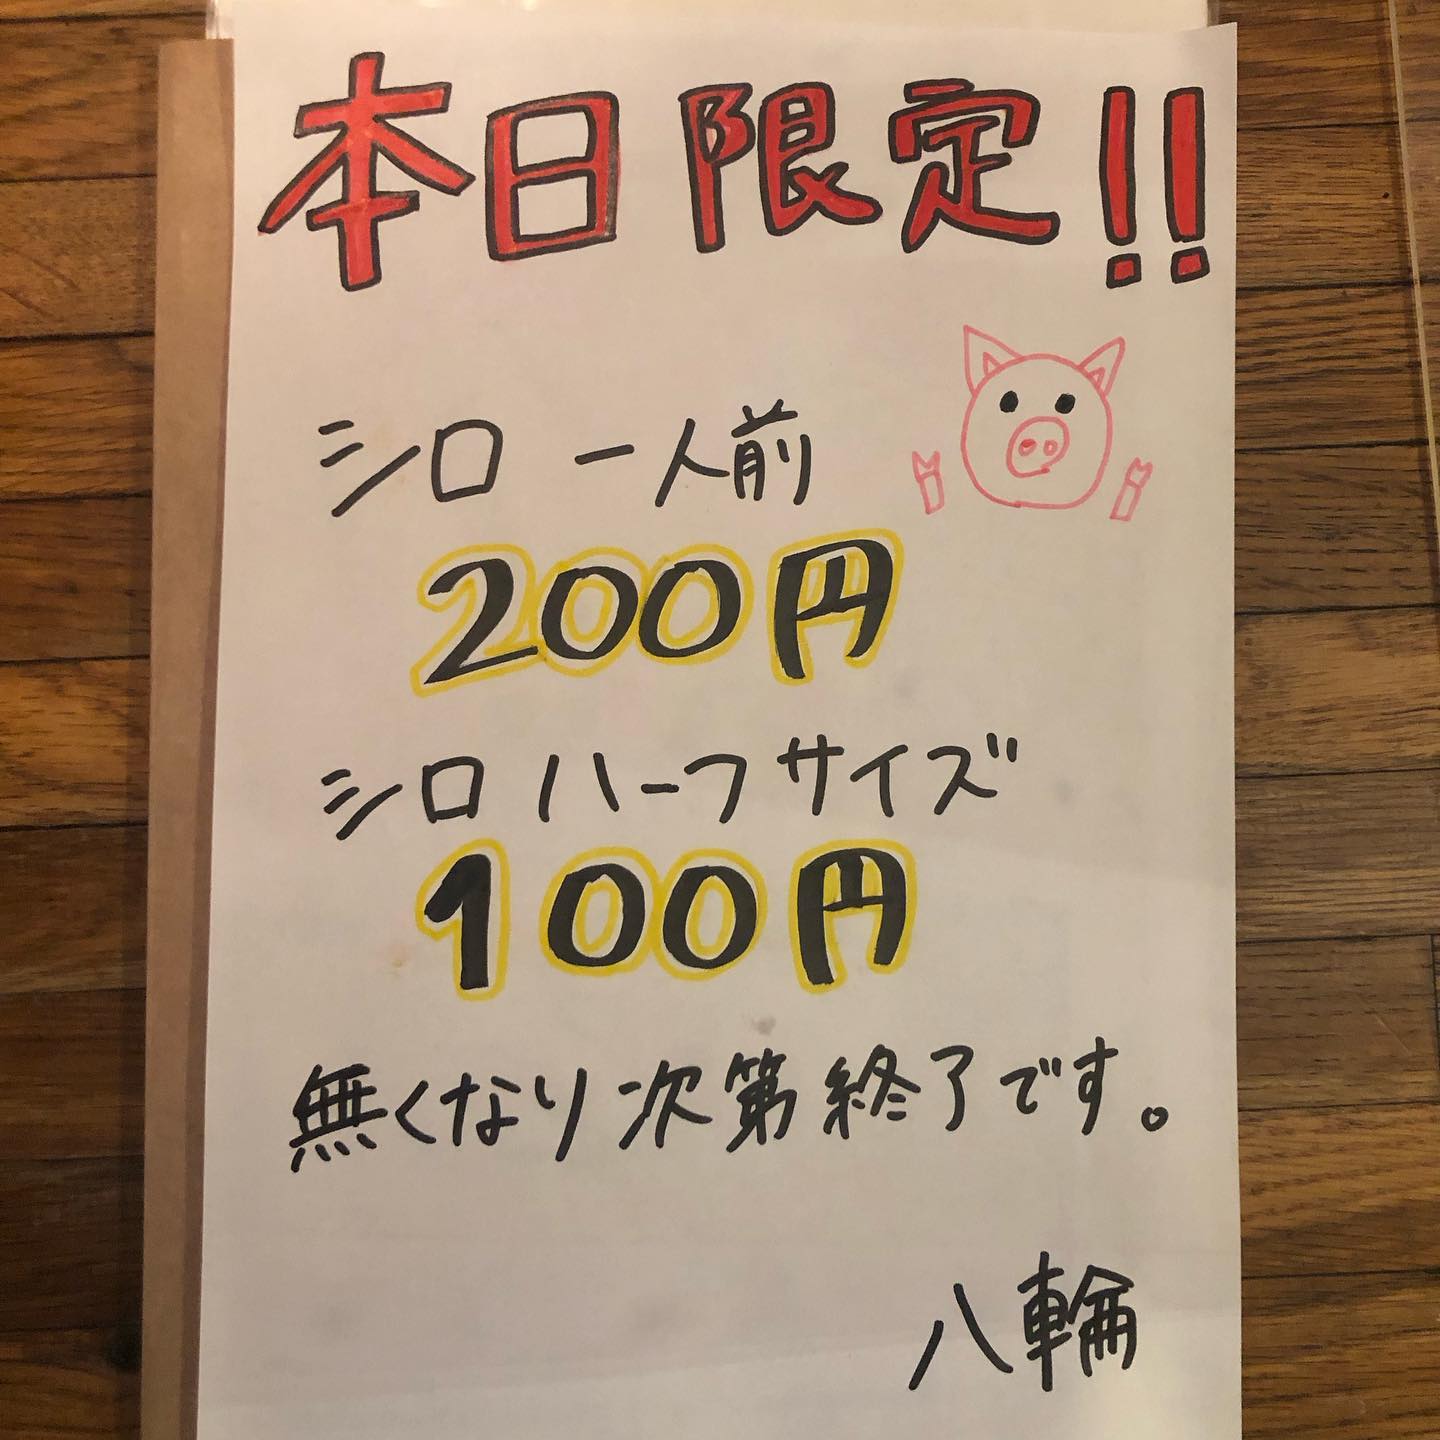 本日限定!!
シロ 一人前
200円
シロ ハーフサイズ
100円
無くなり次第終了です。
八輪